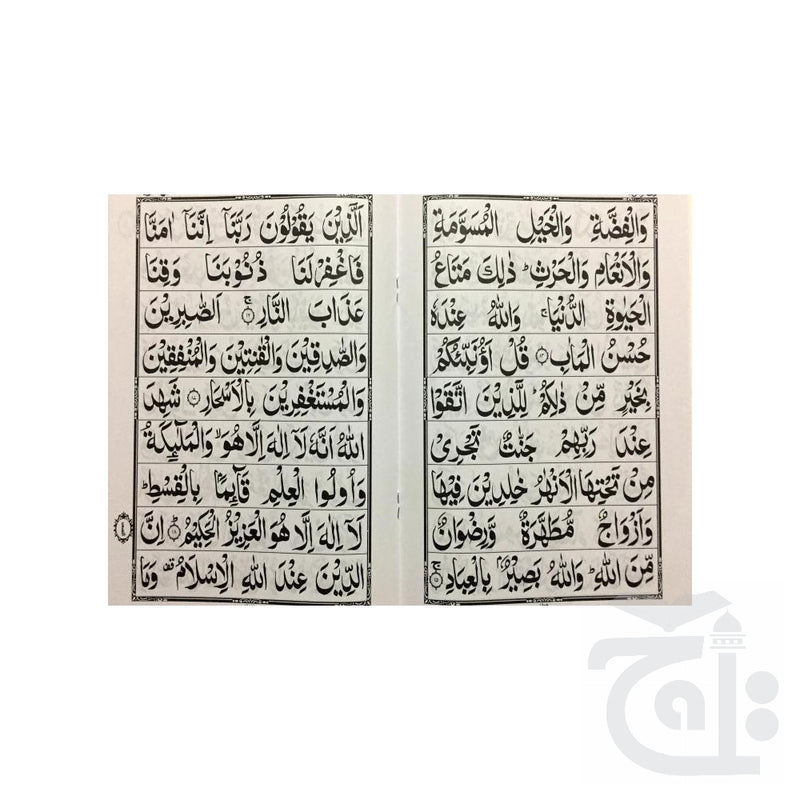 وَالْفِضَّةِ وَالْخَيْلِ الْمُسَوَّمَةِ
وَالْاَنْعَامِ وَالْحَرْثِ ؕ ذٰلِكَ مَتَاعُ
الْحَيٰوةِ الدُّنْيَا ۚ وَاللّٰهُ عِنْدَهٗ
حُسْنُ الْمَاٰبِ ۝۱۴ قُلْ اَؤُنَبِّئُكُمْ
بِخَيْرٍ مِّنْ ذٰلِكُمْ لِلَّذِيْنَ اتَّقَوْا
عِنْدَ رَبِّهِمْ جَنّٰتٌ تَجْرِيْ
مِنْ تَحْتِهَا الْاَنْهٰرُ خٰلِدِيْنَ فِيْهَا
وَاَزْوَاجٌ مُّطَهَّرَةٌ وَّرِضْوَانٌ
مِّنَ اللّٰهِ ؕ وَاللّٰهُ بَصِيْرٌۢ بِالْعِبَادِ ۝۱۵ۚ
اَلَّذِيْنَ يَقُوْلُوْنَ رَبَّنَاۤ اِنَّنَاۤ اٰمَنَّا
فَاغْفِرْ لَنَا ذُنُوْبَنَا وَقِنَا
عَذَابَ النَّارِ ۝۱۶ۚ اَلصّٰبِرِيْنَ
وَالصّٰدِقِيْنَ وَالْقٰنِتِيْنَ وَالْمُنْفِقِيْنَ
وَالْمُسْتَغْفِرِيْنَ بِالْاَسْحَارِ ۝۱۷ شَهِدَ
اللّٰهُ اَنَّهٗ لَاۤ اِلٰهَ اِلَّا هُوَ ۙ وَالْمَلٰٓئِكَةُ
وَاُولُوا الْعِلْمِ قَآئِمًۢا بِالْقِسْطِ ؕ
لَاۤ اِلٰهَ اِلَّا هُوَ الْعَزِيْزُ الْحَكِيْمُ ۝۱۸ؕ اِنَّ
الدِّيْنَ عِنْدَ اللّٰهِ الْاِسْلَامُ ۫ وَمَا